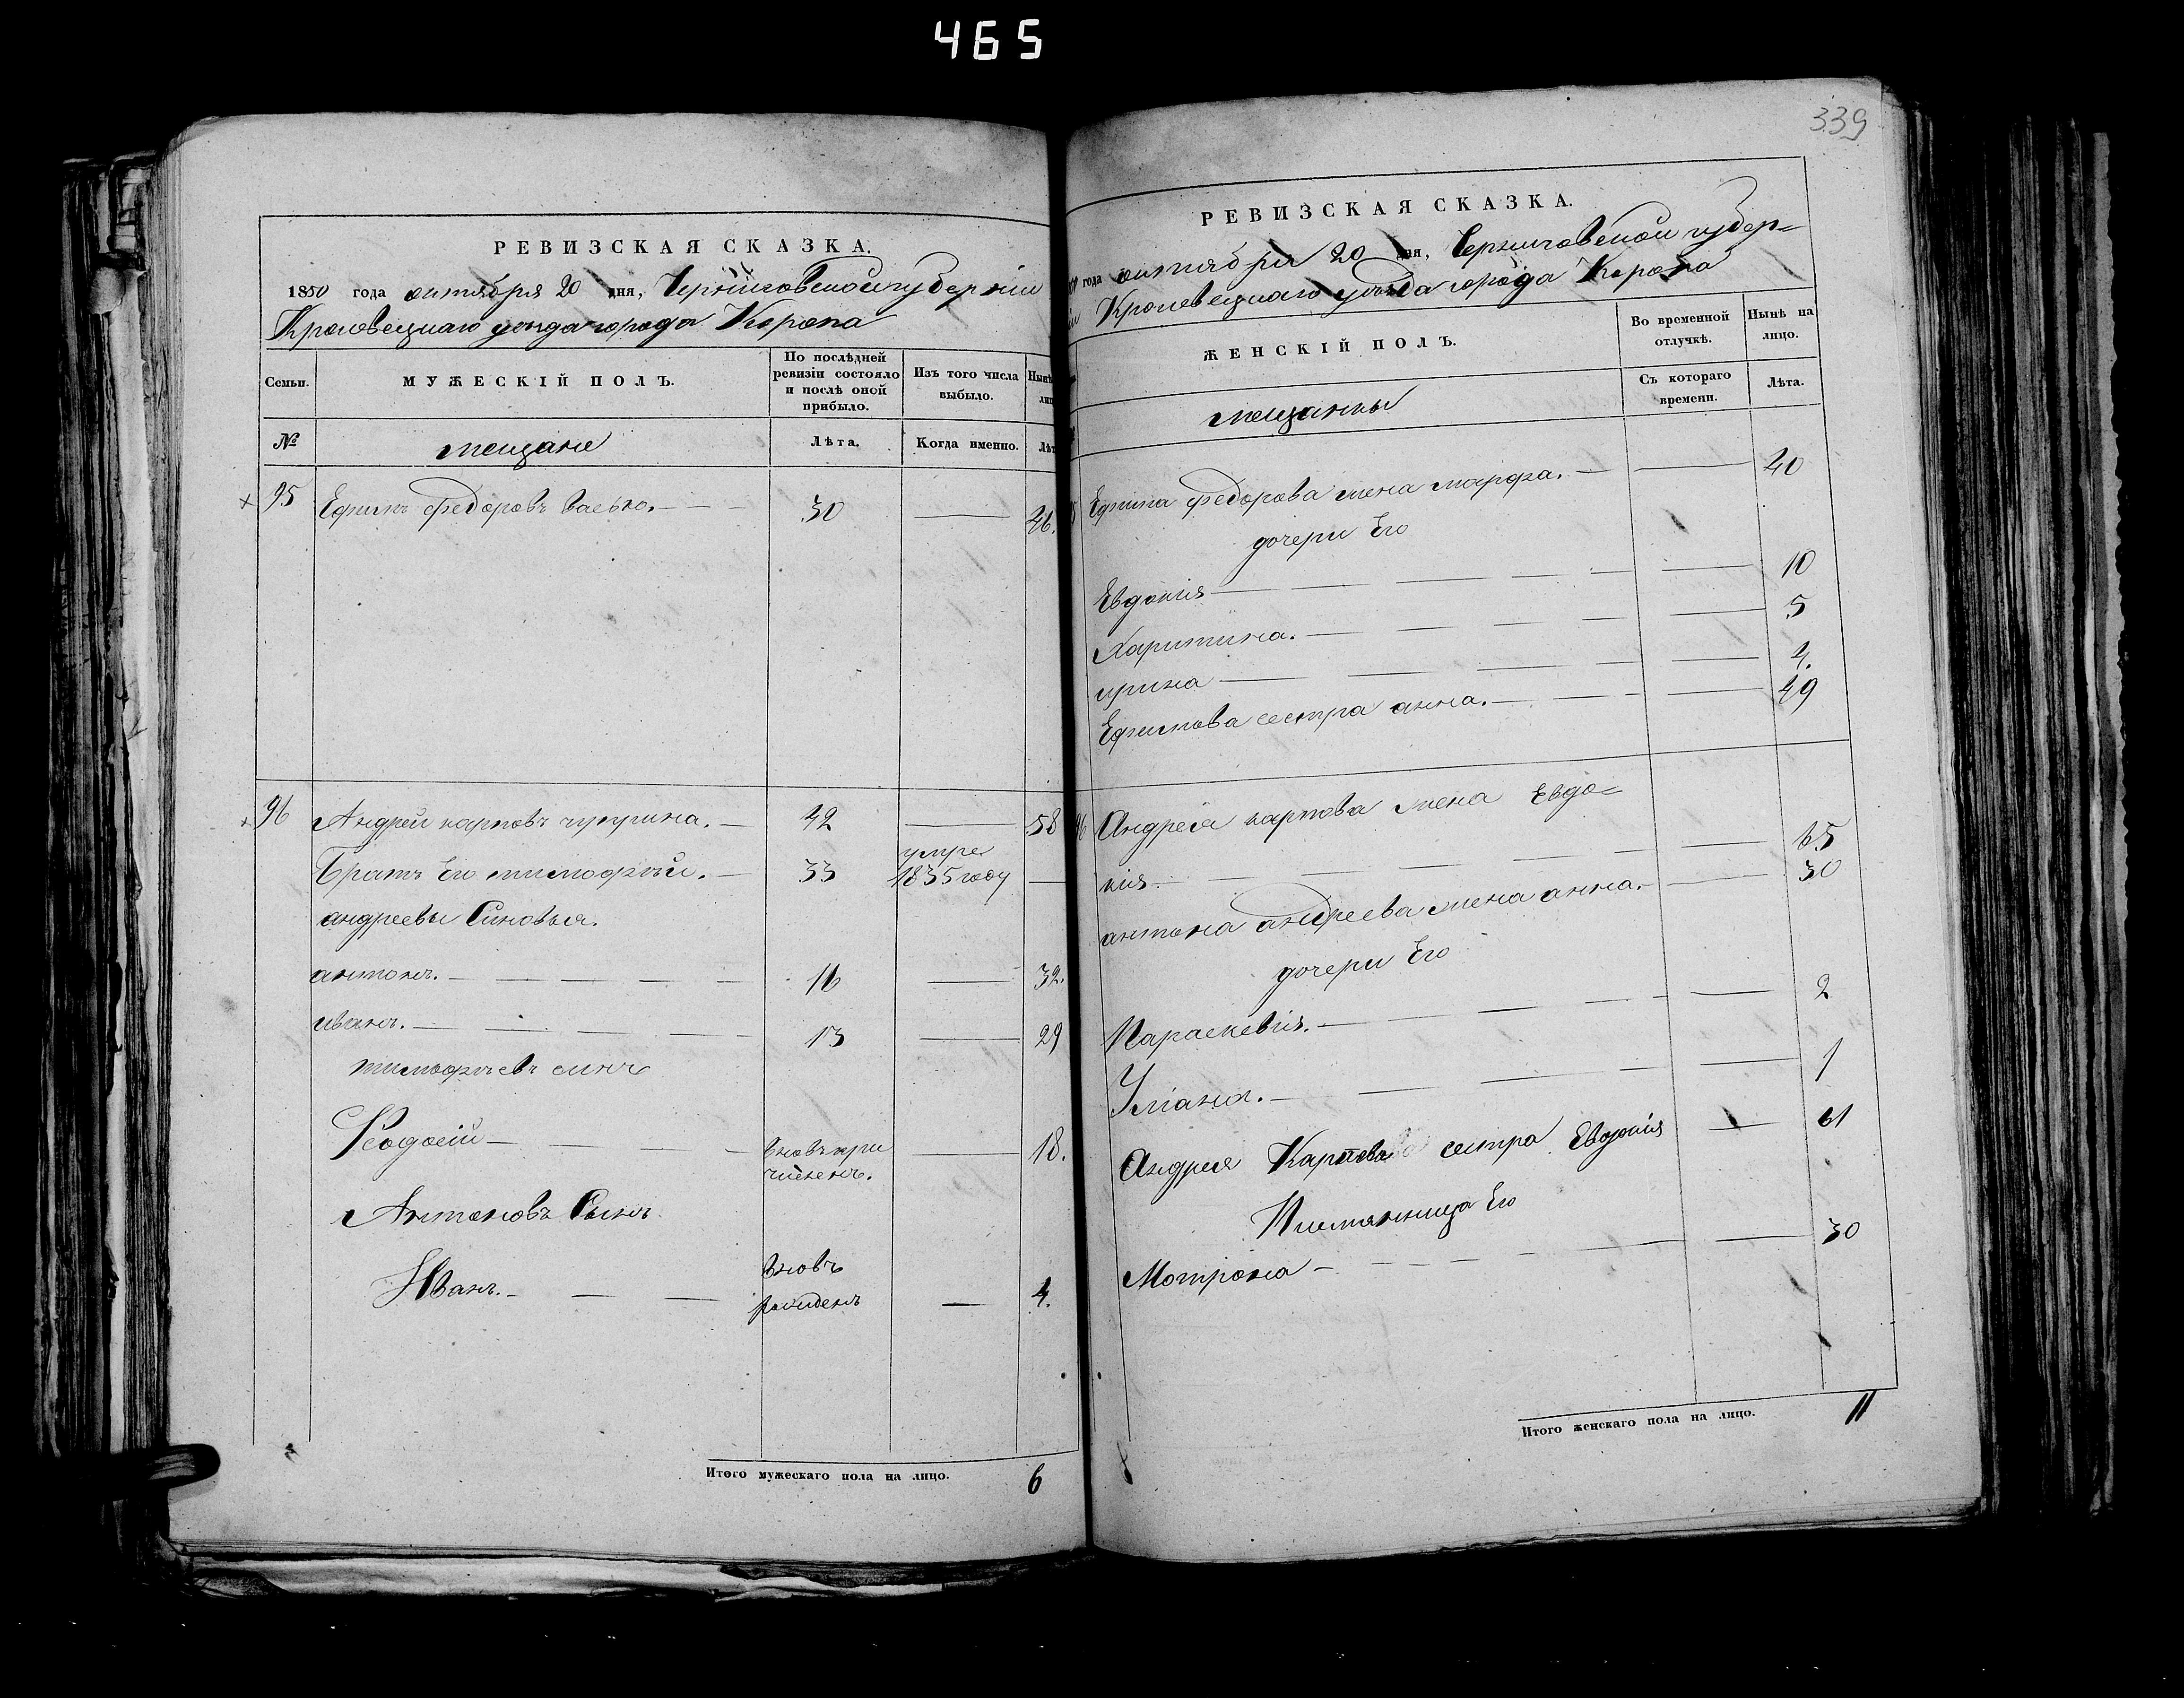 465
РЕВИЗСКАЯ СКАЗКА.
1850 года октября 20 дня, Черниговской губерніи
Кролевецкаго уѣзда города Коропа
Семьи.
МУЖЕСКІЙ ПОЛЪ.
По послѣдней ревизіи состояло и послѣ оной прибыло.
Изъ того числа выбыло.
Нынѣ
№
мещане
Лѣта.
Когда именно.
Лѣт
95 Ефимъ федоровъ васько. 30 — 46.
96 Андрей карповъ чугрина. 42 — 58
Братъ Его тимофѣй. 33 умре 1835 году —
андреевы Синовья.
антонъ. 16 — 32.
иванъ. 13 — 29
тимофѣевъ синъ
Феодосій — вновь причисленъ. — 18.
Антоновъ Сынъ
Иванъ. — вновь рожденъ — 4.
Итого мужескаго пола на лицо. 6
339
РЕВИЗСКАЯ СКАЗКА.
года октября 20 дня, Черниговской губер=
Кролевецкаго уѣзда города Коропа
ЖЕНСКІЙ ПОЛЪ.
Во временной отлучкѣ.
Нынѣ на лицо.
Съ котораго времени.
Лѣта.
мещанки
Ефима федорова жена марфа. — 40
дочери Его
Евдокия — 10
Харитина. — 5
ирина — 4.
Ефимова сестра анна. — 49
96 Андрея карпова жена Евдо=
кия — 65
антона андреева жена анна. — 30
дочери Его
Параскевия. — 2
Улiана. — 1
Андрея Карпова сестра Евдокия — 61
Племянница Его
Мотрона — 30
Итого женскаго пола на лицо. 11